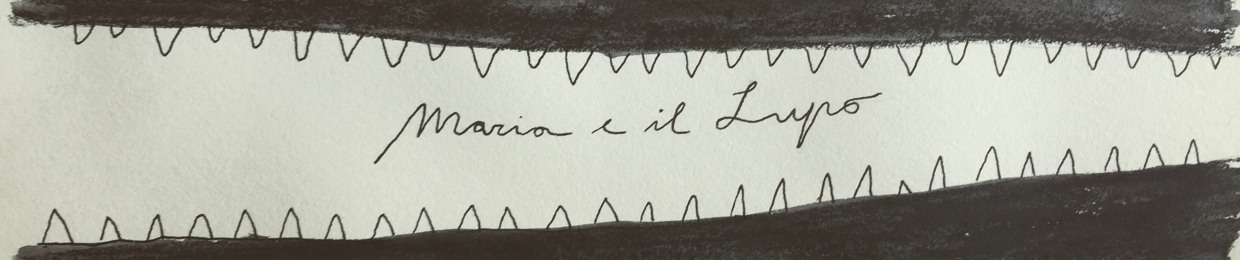 Maria e il Lupo